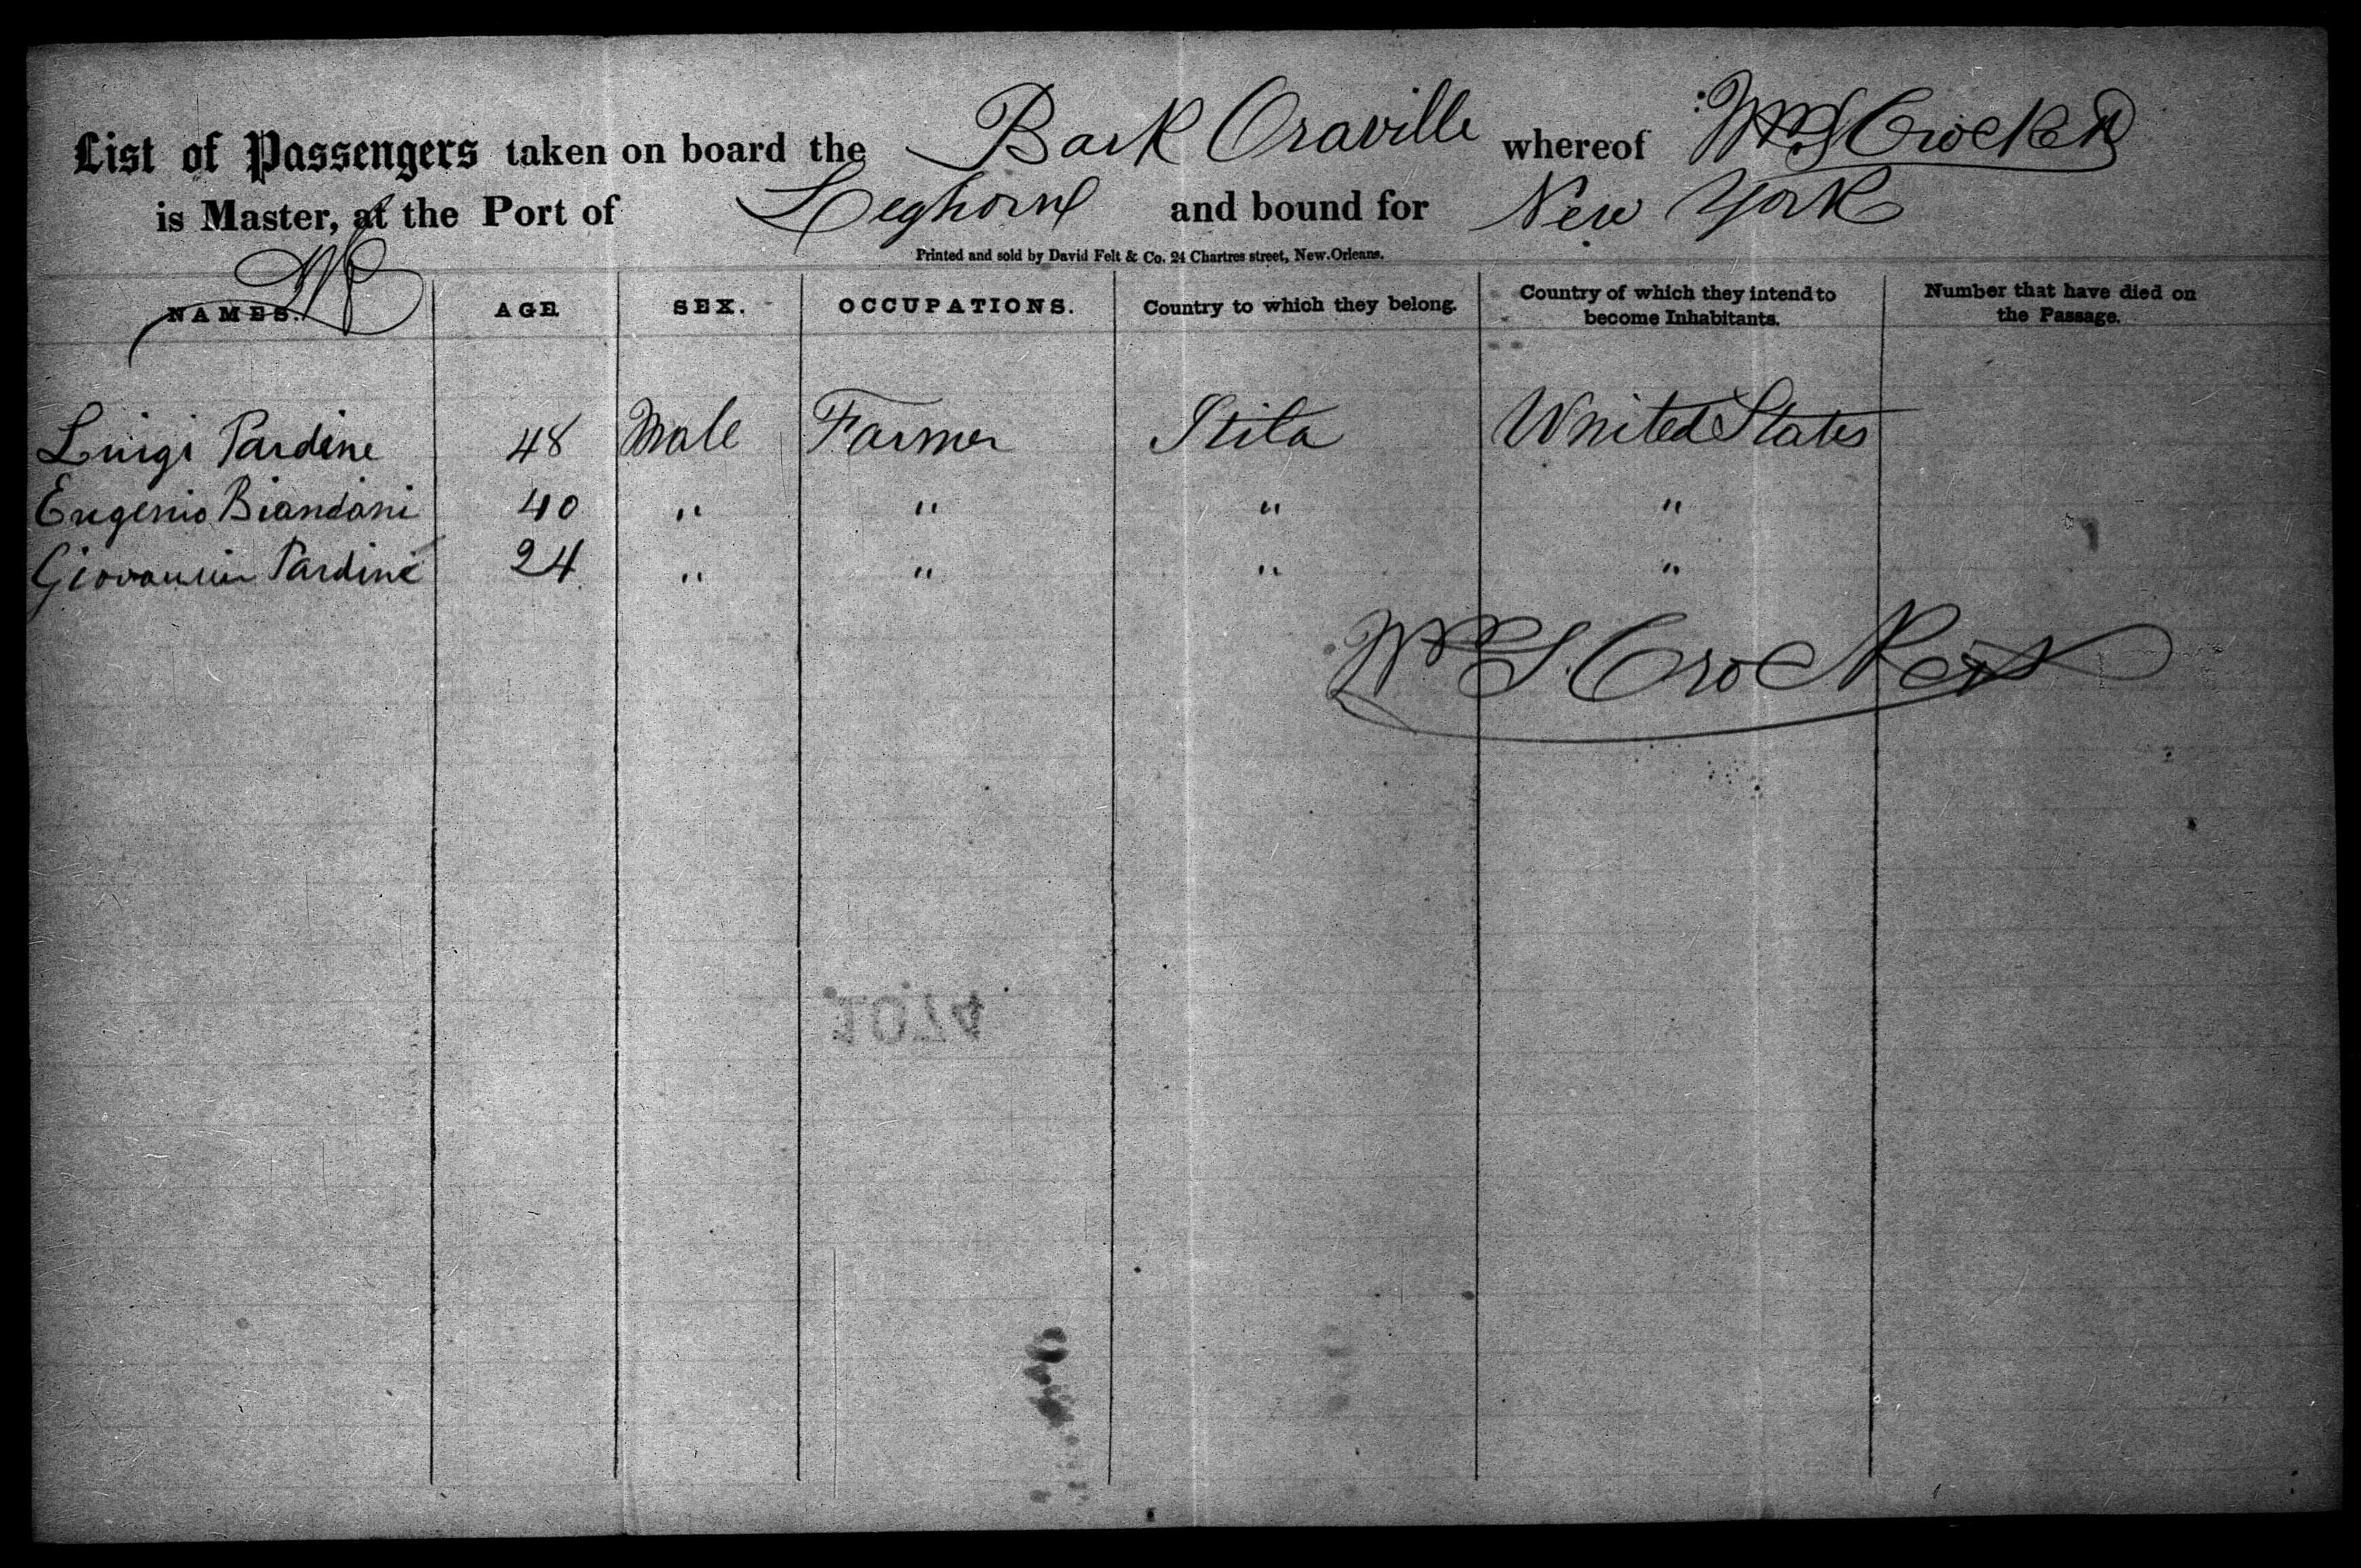 List of Passengers taken on board the Bark Oraville whereof Wm S Crocker
is Master, at the Port of Leghorn and bound for New York
Printed and sold by David Felt & Co. 24 Chartres street, New.Orleans.
NAMES. AGE SEX. OCCUPATIONS. Country to which they belong. Country of which they intend to become Inhabitants. Number that have died on the Passage.
Luigi Pardine 48 Male Farmer Itila United States
Eugenio Biandani 40 " " " "
Giovannin Pardine 24 " " " "
Wm S. Crocker
1074